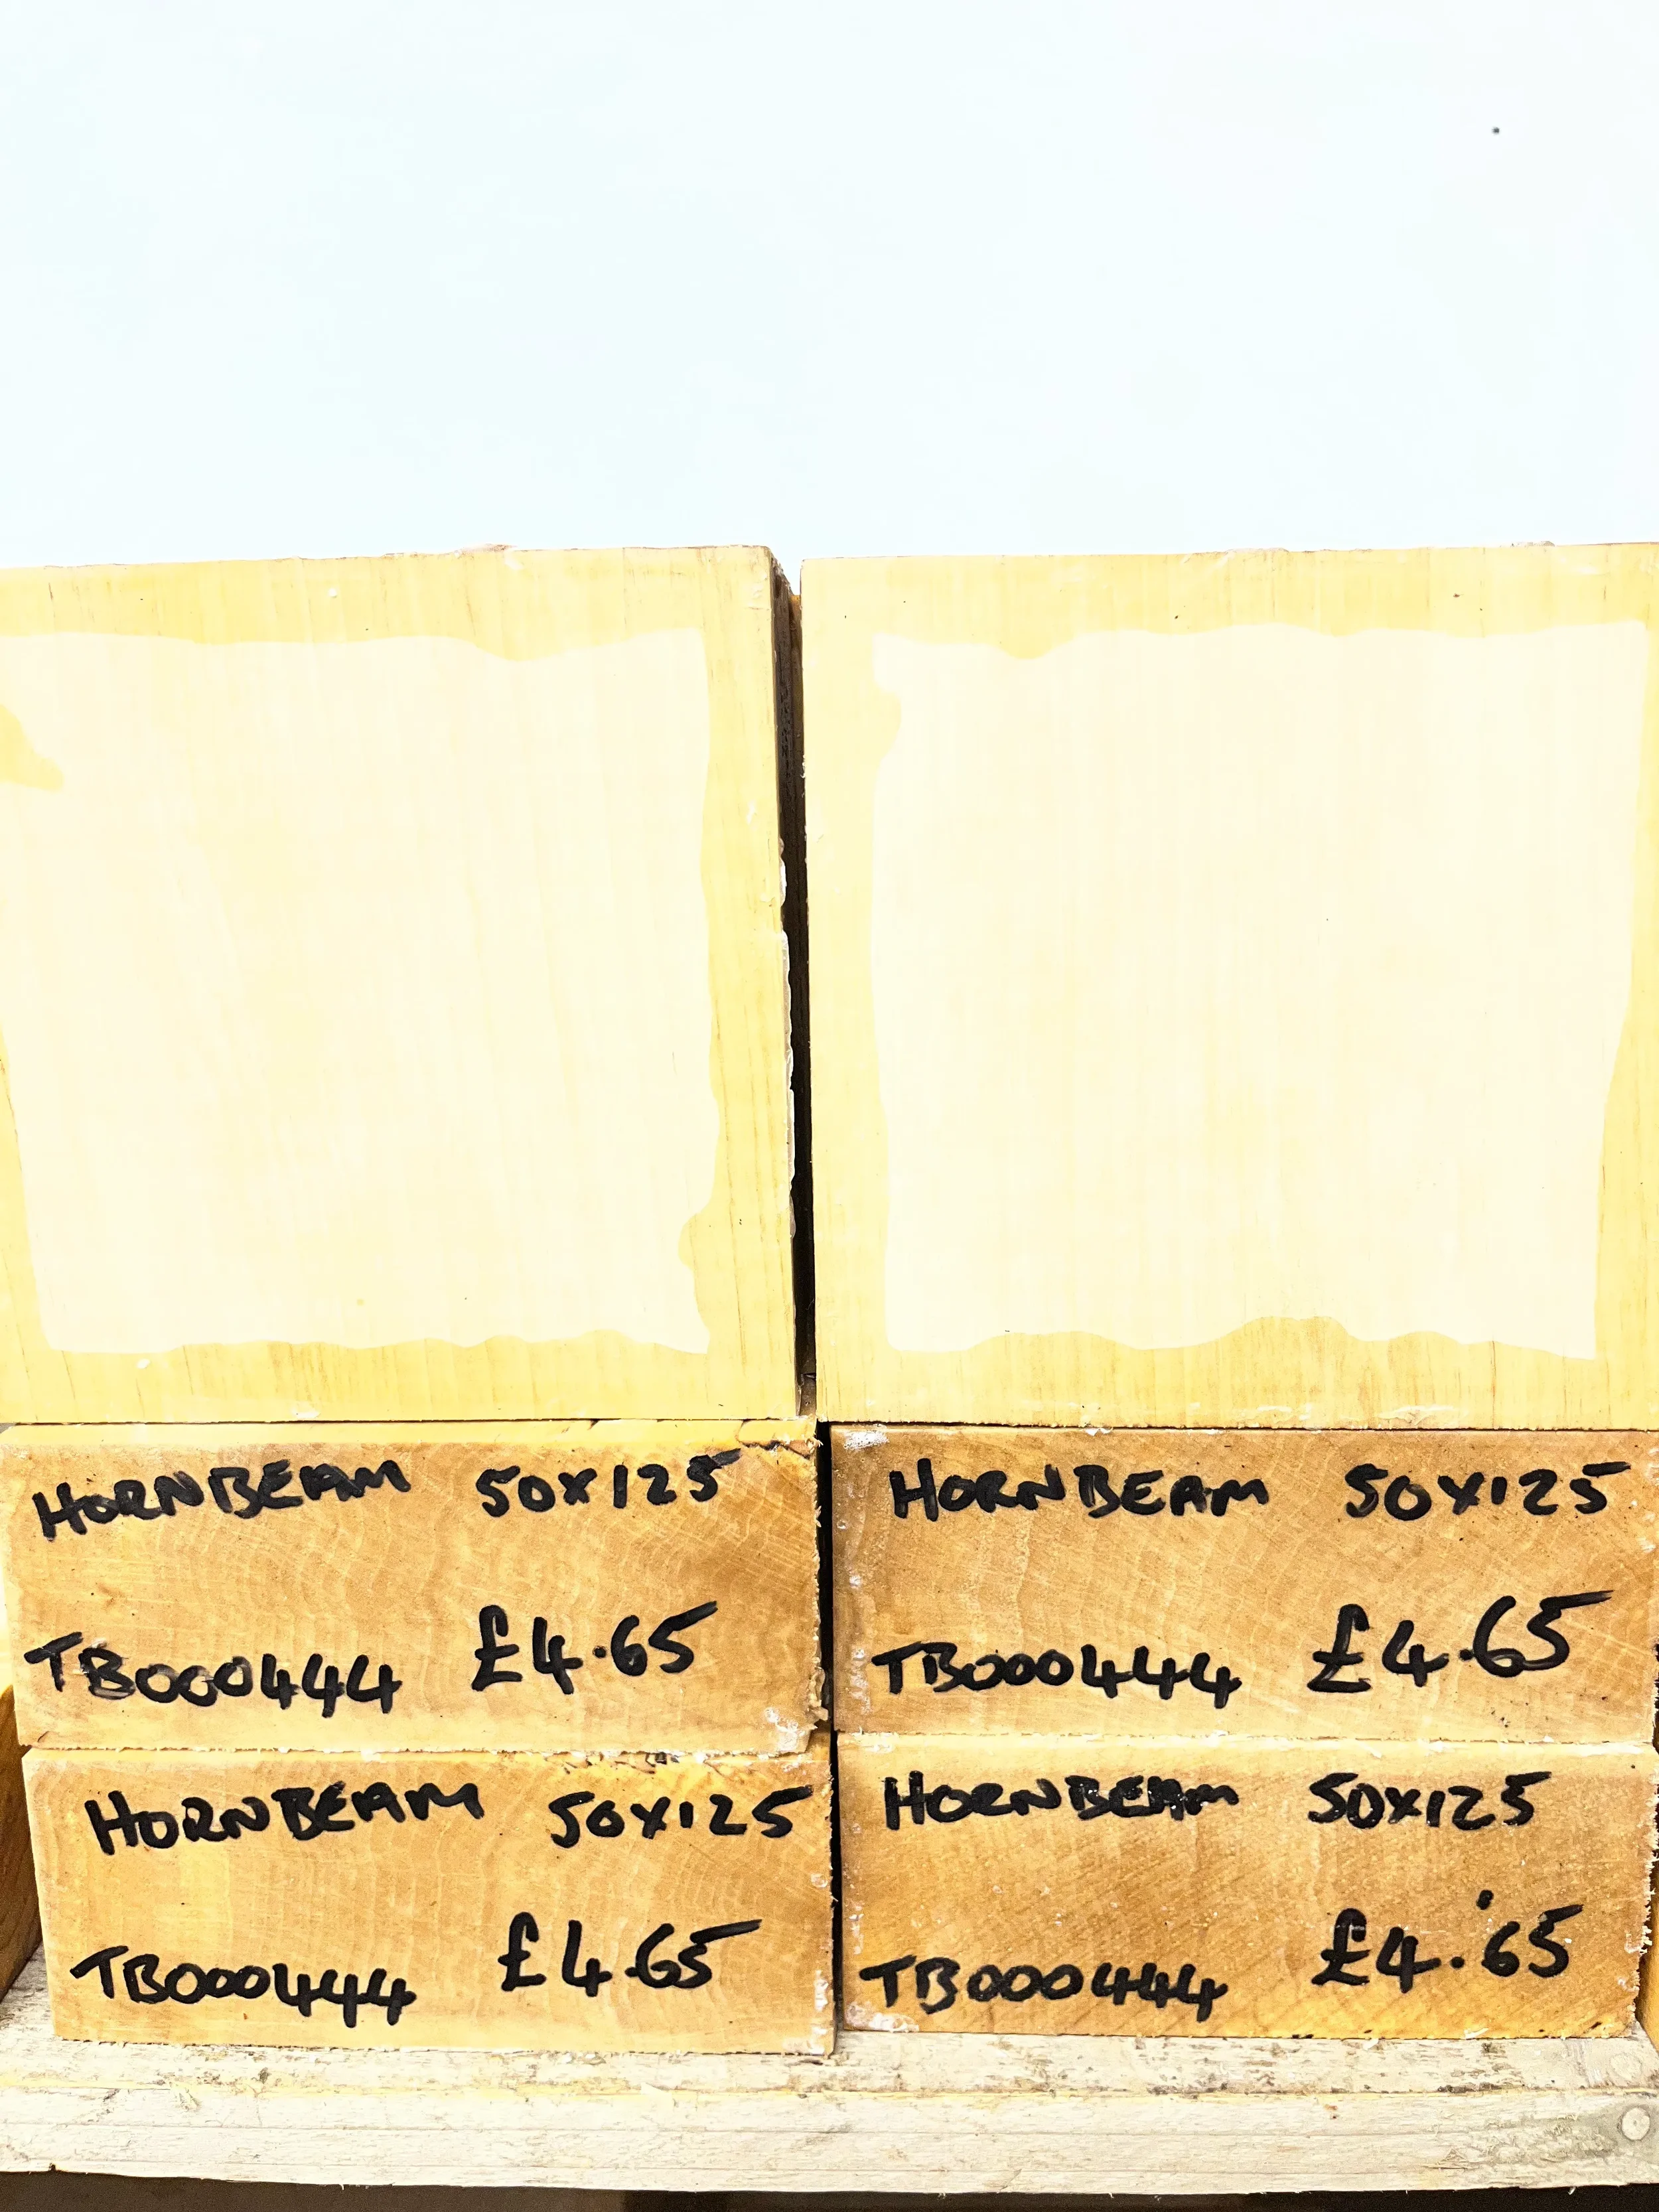 HORNBEAM 50X125
TB000444 £4.65
HORNBEAM 50X125
TB000444 £4.65
HORNBEAM 50X125
TB000444 £4.65
HORNBEAM 50X125
TB000444 £4.65